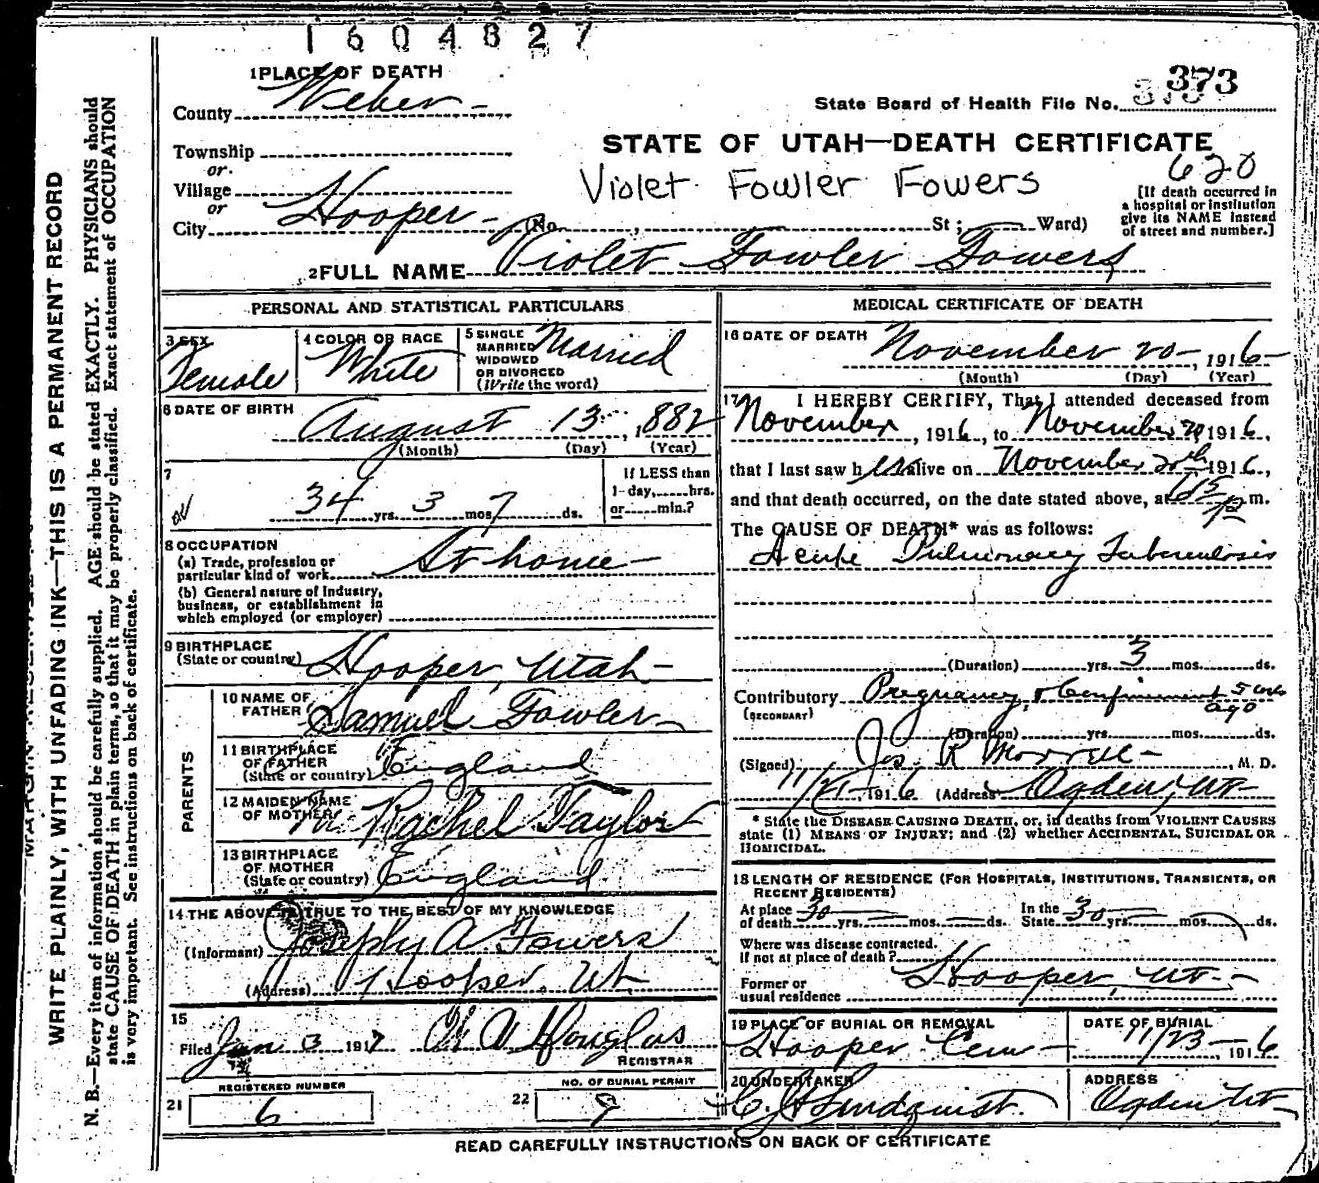 1604827
1 PLACE OF DEATH
County Weber
State Board of Health File No. 373
Township
or
Village
or
City Hooper (No. , St; Ward)
STATE OF UTAH—DEATH CERTIFICATE
620
Violet Fowler Fowers
[If death occurred in
a hospital or institution
give its NAME instead
of street and number.]
2 FULL NAME Violet Fowler Fowers
PERSONAL AND STATISTICAL PARTICULARS
3 SEX
Female
4 COLOR OR RACE
White
5 SINGLE
MARRIED
WIDOWED
OR DIVORCED
(Write the word)
Married
6 DATE OF BIRTH
August 13, 1882
(Month) (Day) (Year)
7
34 yrs. 3 mos. 7 ds.
If LESS than
1-day, hrs.
or min.?
8 OCCUPATION
(a) Trade, profession or
particular kind of work At home
(b) General nature of Industry,
business, or establishment in
which employed (or employer)
9 BIRTHPLACE
(State or country) Hooper, Utah
PARENTS
10 NAME OF
FATHER Samuel Fowler
11 BIRTHPLACE
OF FATHER
(State or country) England
12 MAIDEN NAME
OF MOTHER Rachel Taylor
13 BIRTHPLACE
OF MOTHER
(State or country) England
14 THE ABOVE IS TRUE TO THE BEST OF MY KNOWLEDGE
(Informant) Joseph A Fowers
(Address) Hooper, Ut
15
Filed Jan 3 1917 Douglas
REGISTRAR
REGISTERED NUMBER
21 6
NO. OF BURIAL PERMIT
22 9
MEDICAL CERTIFICATE OF DEATH
16 DATE OF DEATH November 20, 1916
(Month) (Day) (Year)
17 I HEREBY CERTIFY, That I attended deceased from
November, 1916, to November 20 1916,
that I last saw her alive on November 20th 1916,
and that death occurred, on the date stated above, at m.
The CAUSE OF DEATH* was as follows:
Acute Pulmonary Tuberculosis
(Duration) yrs. 3 mos. ds.
Contributory Pregnancy, & Confinement 5 wks
(SECONDARY) ago
(Duration) yrs. mos. ds.
(Signed) Jos R Morrell, M. D.
11/21, 1916 (Address) Ogden, Ut
* State the DISEASE CAUSING DEATH, or, in deaths from VIOLENT CAUSES
state (1) MEANS OF INJURY; and (2) whether ACCIDENTAL, SUICIDAL OR
HOMICIDAL.
18 LENGTH OF RESIDENCE (FOR HOSPITALS, INSTITUTIONS, TRANSIENTS, OR
RECENT RESIDENTS)
At place
of death 30 yrs. mos. ds.
In the
State 30 yrs. mos. ds.
Where was disease contracted.
if not at place of death?
Former or
usual residence Hooper, Ut
19 PLACE OF BURIAL OR REMOVAL
Hooper Cem
DATE OF BURIAL
11/23, 1916
20 UNDERTAKER
C J Lindquist.
ADDRESS
Ogden Ut
READ CAREFULLY INSTRUCTIONS ON BACK OF CERTIFICATE
WRITE PLAINLY, WITH UNFADING INK—THIS IS A PERMANENT RECORD
N. B.—Every item of information should be carefully supplied. AGE should be stated EXACTLY. PHYSICIANS should
state CAUSE OF DEATH in plain terms, so that it may be properly classified. Exact statement of OCCUPATION
is very important. See instructions on back of certificate.